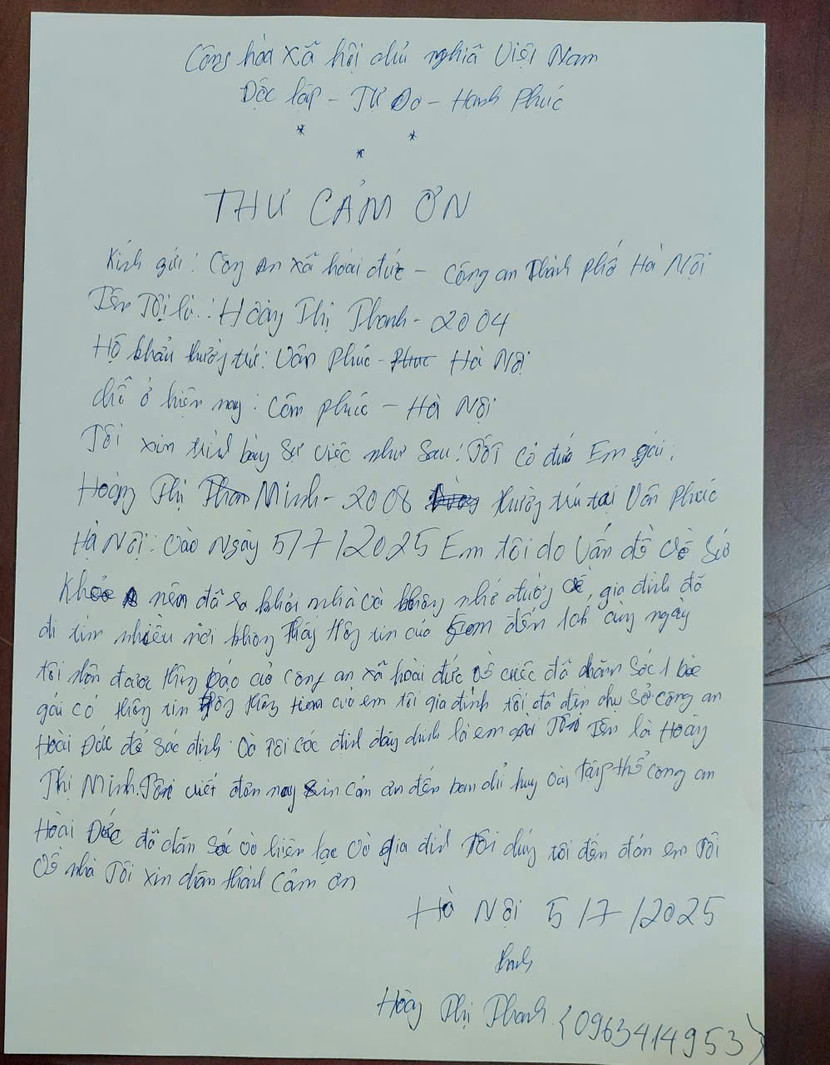 Cộng hòa xã hội chủ nghĩa Việt Nam
Độc lập - Tự Do - Hạnh Phúc
* * *
THƯ CẢM ƠN
Kính gửi: Công An xã hoài đức - Công an Thành phố Hà Nội
Tên Tôi là: Hoàng Thị Thanh - 2004
Hộ khẩu thường trú: Vân Phúc - Hà Nội
chỗ ở hiện nay: Cẩm phúc - Hà Nội
Tôi xin trình bày sự việc như sau: Tôi có đứa Em gái:
Hoàng Thị Minh - 2008 thường trú tại Vân Phúc
Hà Nội: vào ngày 5/7/2025 Em tôi do vấn đề về sức
Khỏe nên đã ra khỏi nhà và không nhớ đường về, gia đình đã
đi tìm nhiều nơi không thấy thông tin của em đến 10h cùng ngày
tôi nhận được thông báo của công an xã hoài đức về cuộc đã chăm sóc 1 bé
gái có thông tin giống thông tin của em tôi gia đình tôi đã đến trụ sở công an
Hoài Đức để xác định và tôi xác định đúng là em gái Tôn Tên là Hoàng
Thị Minh. Tôi viết đơn này xin cảm ơn đến ban chỉ huy và tập thể công an
Hoài Đức đã chăm sóc và liên lạc với gia đình tôi đến đón em Tôi
về nhà Tôi xin chân thành cảm ơn
Hà Nội 5/7/2025
Thanh
Hoàng Thị Thanh {0963414953}